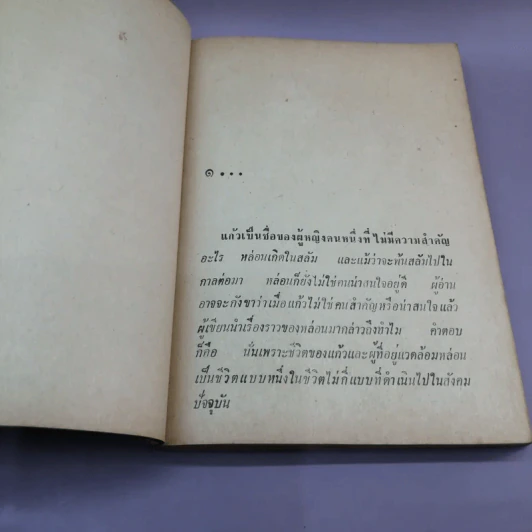 ๑ • • •
แก้วเป็นชื่อของผู้หญิงคนหนึ่งที่ไม่มีความสำคัญ
อะไร หล่อนเกิดในสลัม และแม้ว่าจะพ้นสลัมไปใน
กาลต่อมา หล่อนก็ยังไม่ใช่คนน่าสนใจอยู่ดี ผู้อ่าน
อาจจะกังขาว่าเมื่อแก้วไม่ใช่คนสำคัญหรือน่าสนใจแล้ว
ผู้เขียนนำเรื่องราวของหล่อนมากล่าวถึงทำไม คำตอบ
ก็คือ นั่นเพราะชีวิตของแก้วและผู้ที่อยู่แวดล้อมหล่อน
เป็นชีวิตแบบหนึ่งในชีวิตไม่กี่แบบที่ดำเนินไปในสังคม
ปัจจุบัน